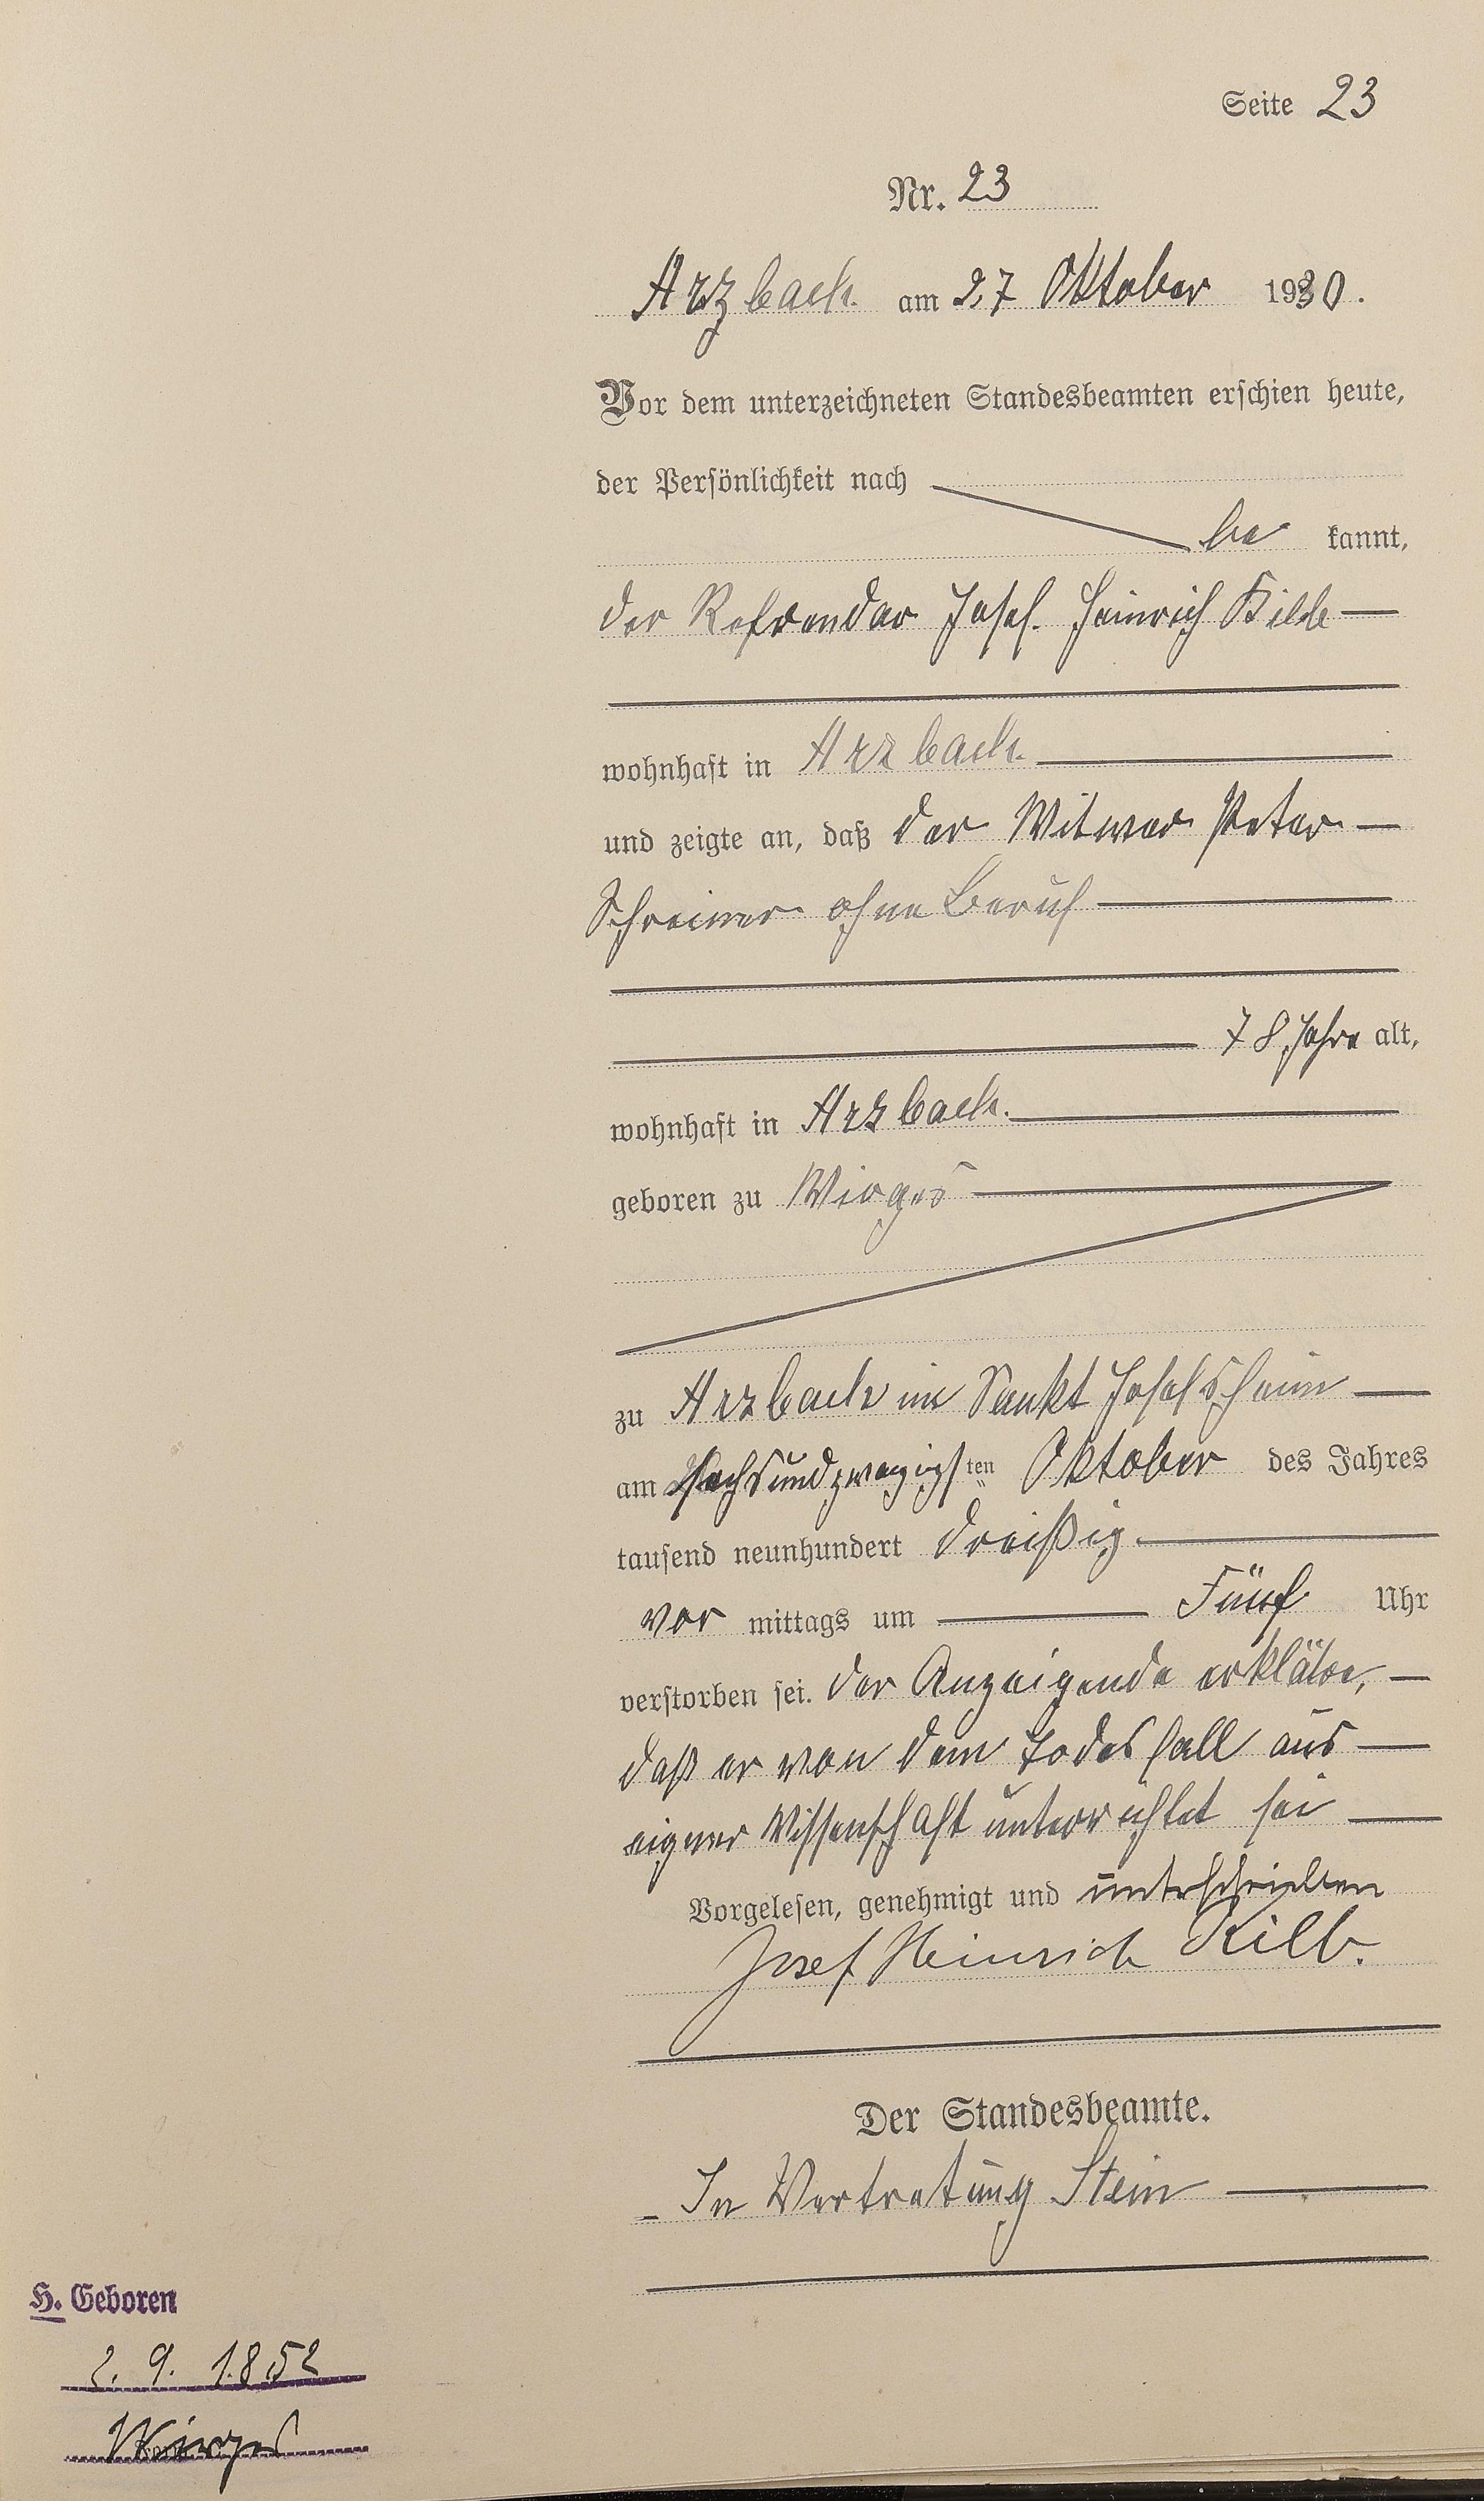 Seite 23
Nr. 23
Arzbach am 27 Oktober 1930.
Vor dem unterzeichneten Standesbeamten erschien heute,
der Persönlichkeit nach
be kannt,
der Refrendar Josef Heinrich Kilb
wohnhaft in Arzbach
und zeigte an, daß der Witwer Peter
Schreiner ohne Beruf
78 Jahre alt,
wohnhaft in Arzbach
geboren zu Wirges
zu Arzbach im Sankt Josefsheim
am sechsundzwanzigsten Oktober des Jahres
tausend neunhundert dreißig
vor mittags um Fünf Uhr
verstorben sei. Der Anzeigende erkläre,
daß er von dem Todesfall aus
eigner Wissenschaft unterrichtet sei
Vorgelesen, genehmigt und unterschrieben
Josef Heinrich Kilb.
Der Standesbeamte.
In Vertretung Stein
H. Geboren
2. 9. 1852
Wirges